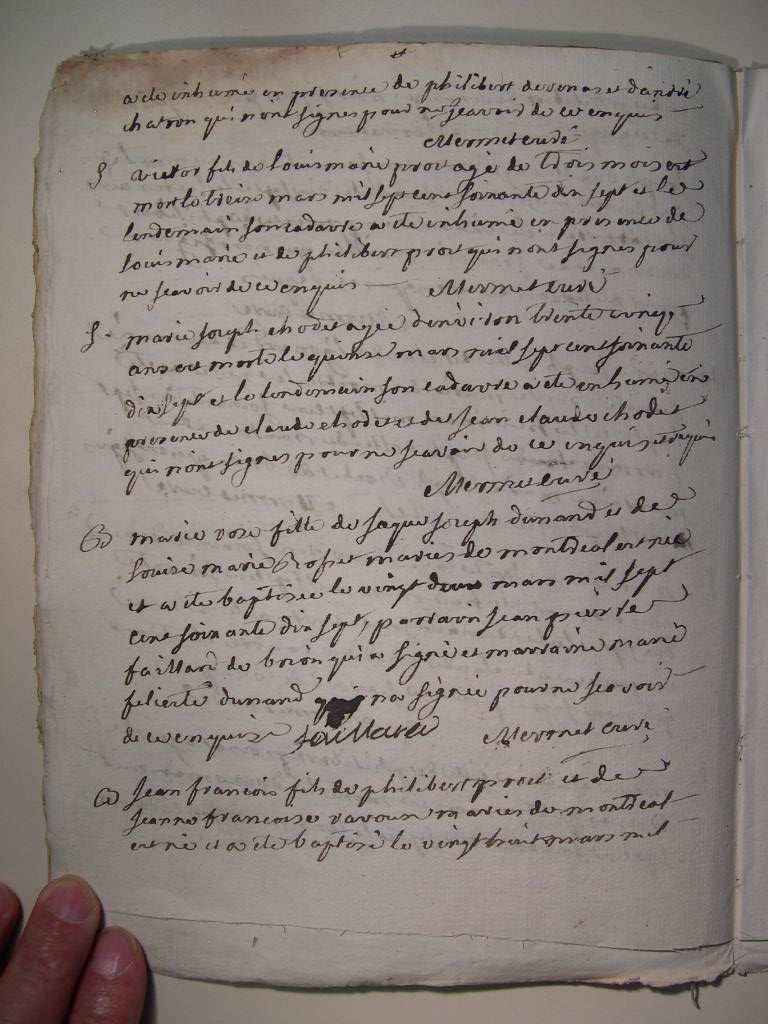 a ete inhumé en presence de philibert devenas et d'andré
chatron qui n'ont signes pour ne sçavoir de ce enquis
Mermet curé
S victor fils de louis marie prost agé de trois mois est
mort le treise mars mil sept cent soixante dix sept et le
lendemain son cadavre a ete inhumé en presence de
louis marie et de philibert prost qui n'ont signes pour
ne sçavoir de ce enquis Mermet curé
S. marie Joseph chodet agée d'environ trente cinq
ans est morte le quinse mars mil sept cent soixante
dix sept et le lendemain son cadavre a ete enhumé en
presence de claude chodet et de jean claude chodet
qui n'ont signes pour ne sçavoir de ce enquis et requis
Mermet curé
B marie rose fille de jaque joseph dunand et de
louise marie Rosset maries de montreal est née
et a ete baptisée le vingt deux mars mil sept
cent soixante dix sept, parrain jean pierre
faillard de brion qui a signé et marraine marie
dunand qui na signée pour ne sçavoir
de ce enquise faillard Mermet curé
B jean francois fils de philibert prost et de
jeanne francoise maries de montreal
est né et a ete baptisé le vingt huit mars mil